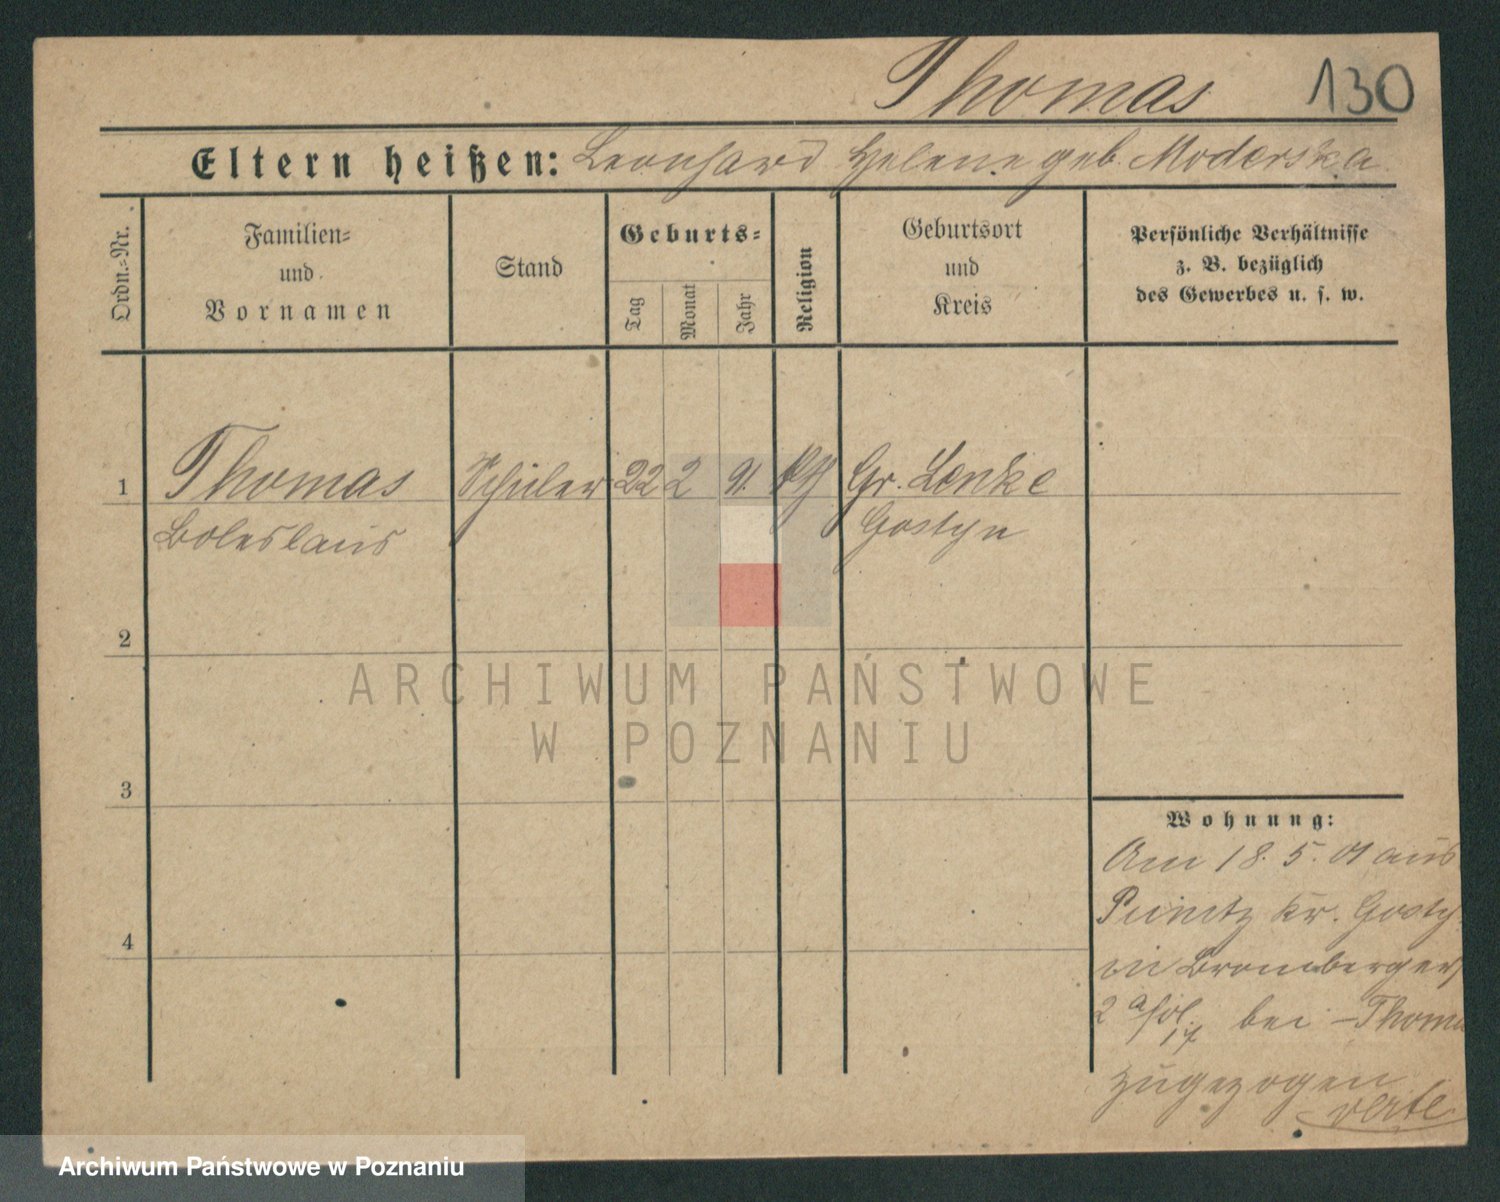 Thomas 130
Eltern heißen: Leonhard Helene geb. Moderska
Ordn.-Nr.
Familien- und Vornamen
Stand
Geburts-
Tag
Monat
Jahr
Religion
Geburtsort und Kreis
Persönliche Verhältnisse
z. B. bezüglich
des Gewerbes u. s. w.
1 Thomas Schüler 22 2 91 kth Gr. Lenke
Boleslaus Gostyn
2
3
4
Wohnung:
Am 18. 5. 01 aus
Punitz Kr. Gosty
in Bromberger
2 bei Thoma
zugezogen
verte
ARCHIWUM PAŃSTWOWE
W POZNANIU
Archiwum Państwowe w Poznaniu